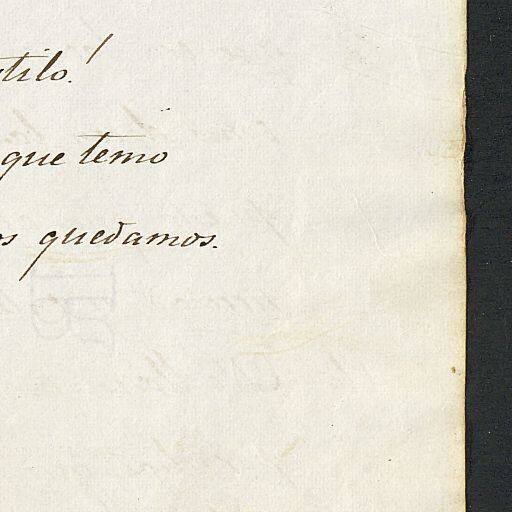 tilo!
que temo
os quedamos.